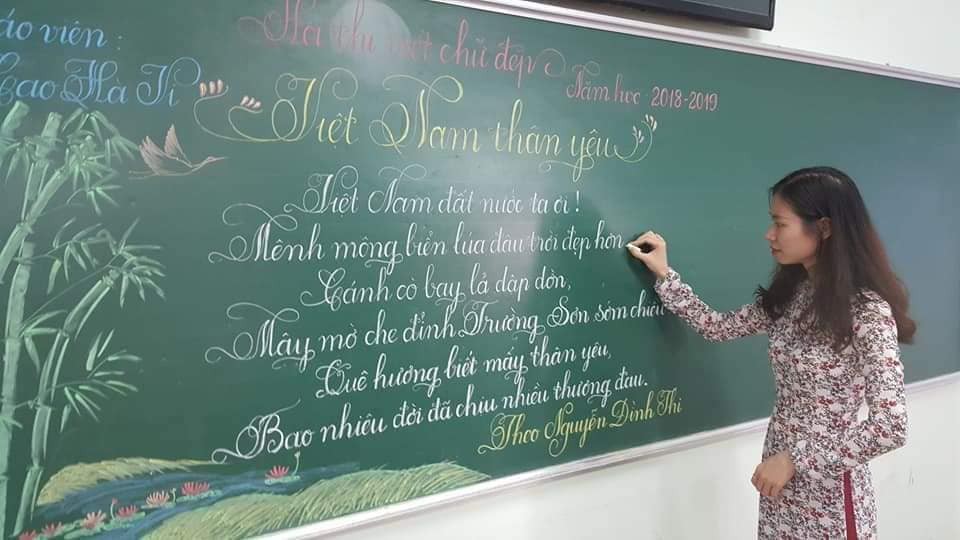 áo viên :
Cao Hà
thi viết chữ đẹp
Năm học 2018-2019
Việt Nam thân yêu
Việt Nam đất nước ta ơi !
Mênh mông biển lúa đâu trời đẹp hơn
Cánh cò bay lả dập dờn,
Mây mờ che đỉnh Trường Sơn sớm chiều
Quê hương biết mấy thân yêu,
Bao nhiêu đời đã chịu nhiều thương đau.
Theo Nguyễn Đình Thi